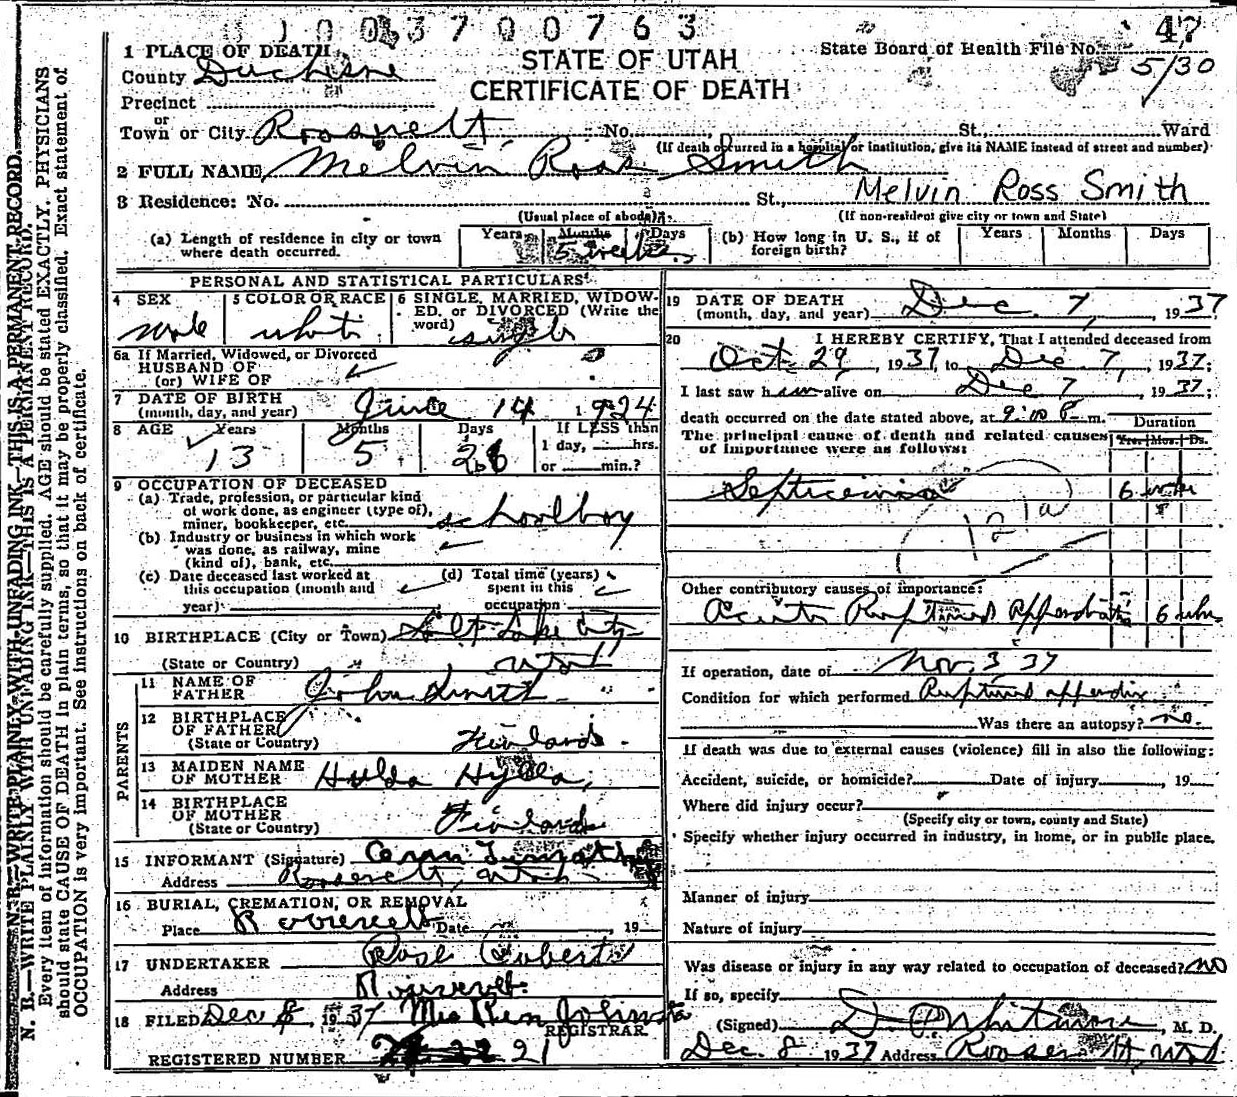 1003700763
47
5/30
STATE OF UTAH
CERTIFICATE OF DEATH
State Board of Health File No.
1 PLACE OF DEATH
County Duchesne
Precinct
or
Town or City Roosevelt No. St., Ward
(If death occurred in a hospital or institution, give its NAME instead of street and number)
2 FULL NAME Melvin Ross Smith
Melvin Ross Smith
3 Residence: No. St.,
(Usual place of abode) (If non-resident give city or town and State)
(a) Length of residence in city or town where death occurred. Years Months Days 5 weeks
(b) How long in U. S., if of foreign birth? Years Months Days
PERSONAL AND STATISTICAL PARTICULARS
4 SEX male
5 COLOR OR RACE white
6 SINGLE, MARRIED, WIDOWED, or DIVORCED (Write the word) single
6a If Married, Widowed, or Divorced
HUSBAND OF
(or) WIFE OF
7 DATE OF BIRTH
(month, day, and year) June 14 1924
8 AGE Years Months Days If LESS than
13 5 1 day, hrs.
or min.?
9 OCCUPATION OF DECEASED
(a) Trade, profession, or particular kind
of work done, as engineer (type of),
miner, bookkeeper, etc. schoolboy
(b) Industry or business in which work
was done, as railway, mine
(kind of), bank, etc.
(c) Date deceased last worked at
this occupation (month and
year)
(d) Total time (years)
spent in this
occupation
10 BIRTHPLACE (City or Town) Salt Lake City
(State or Country) Utah
PARENTS
11 NAME OF
FATHER John Smith
12 BIRTHPLACE
OF FATHER
(State or Country) Finland
13 MAIDEN NAME
OF MOTHER Hulda
14 BIRTHPLACE
OF MOTHER
(State or Country) Finland
15 INFORMANT (Signature)
Address Roosevelt, Utah
16 BURIAL, CREMATION, OR REMOVAL
Place Roosevelt Date , 19
17 UNDERTAKER
Address Roosevelt
18 FILED Dec 8, 1937 Mrs
REGISTRAR
REGISTERED NUMBER 21
19 DATE OF DEATH
(month, day, and year) Dec. 7, 1937
20 I HEREBY CERTIFY, That I attended deceased from
Oct 29, 1937, to Dec. 7, 1937;
I last saw him alive on Dec 7, 1937;
death occurred on the date stated above, at 9:00 P. m.
The principal cause of death and related causes
of importance were as follows:
Duration
Yrs. Mos. Ds.
Septicemia 6 wks
121a
Other contributory causes of importance:
Acute Ruptured appendicitis 6 wks
If operation, date of Nov. 3 37
Condition for which performed Ruptured appendix
Was there an autopsy? no.
If death was due to external causes (violence) fill in also the following:
Accident, suicide, or homicide? Date of injury , 19
Where did injury occur?
(Specify city or town, county and State)
Specify whether injury occurred in industry, in home, or in public place.
Manner of injury
Nature of injury
Was disease or injury in any way related to occupation of deceased? no
If so, specify
(Signed) Whitmore, M. D.
Dec. 8 1937 Address Roosevelt, Utah
N. B.—WRITE PLAINLY WITH UNFADING INK—THIS IS A PERMANENT RECORD.
Every item of information should be carefully supplied. AGE should be stated EXACTLY. PHYSICIANS
should state CAUSE OF DEATH in plain terms, so that it may be properly classified. Exact statement of
OCCUPATION is very important. See instructions on back of certificate.